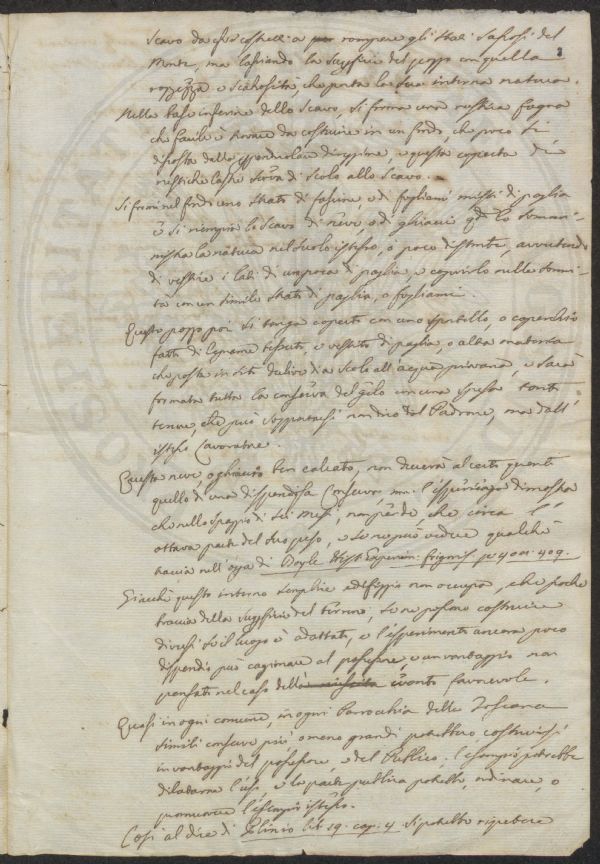 Scavo da esso costrutti a per rompere gli strati sassosi del
Monte, ma lasciando la superficie del pozzo con quella
rozzezza e scabrosità, che porta la sua interna natura.
Nella base inferiore dello Scavo, si forma una rustica fogna
che facile è trovare da costruire in un fondo, che poco si
discosta dalla perpendicolare direzione, e questa coperta di
rustiche lastre serva di scolo allo Scavo.
Si formi nel fondo uno strato di fascine, o di fogliami misti di paglia
e si riempia lo Scavo di neve, o di ghiaccio qdo lo sommi-
nistra la natura nel suolo istesso, o poco distante, avvertendo
di vestire i lati di imposta di paglia, e coprirlo nella sommi-
tà con un simile strato di paglia, o fogliami.
Questo pozzo poi si tenga coperto con uno sportello, o coperchio
fatto di legname tessuto, e vestito di paglia, o altra materia
che posta in sito declive dia scolo all'acqua piovana, e sarà
formata tutta la conserva del gelo con una spesa tanto
tenue, che può sopportarsi non dico dal Padrone, ma dall'
istesso Lavoratore.
Questa neve o ghiaccio ben calcato, non durerà al certo quanto
quello di una dispendiosa Conserva, ma l'esperienza dimostra
che nello spazio di sei mesi, non perde che circa l'
ottava parte del suo peso, e se ne può vedere qualche
traccia nell'opa di Boyle Hist. Experim: frigoris. pe 408 409.
Giacchè questo interno semplice edifizio non occupa, che poche
braccia della superficie del terreno, se ne possono costruire
diversi se il luogo è adattato, e l'esperimento ancora poco
dispendio può cagionare al possessore, e un vantaggio non
pensato nel caso della riuscita evento favorevole.
Quasi in ogni comune, in ogni Parrocchia della Toscana
simili conserve più, o meno grandi potrebbero costruirsi
in vantaggio del possessore, e del Pubblico. l'esempio potrebbe
dilatarne l'uso, e la parte pubblica potrebbe, ordinare, o
promuovere l'esempio istesso.
Così al dire di Plinio lib 19. cap. 4. si potrebbe ripetere